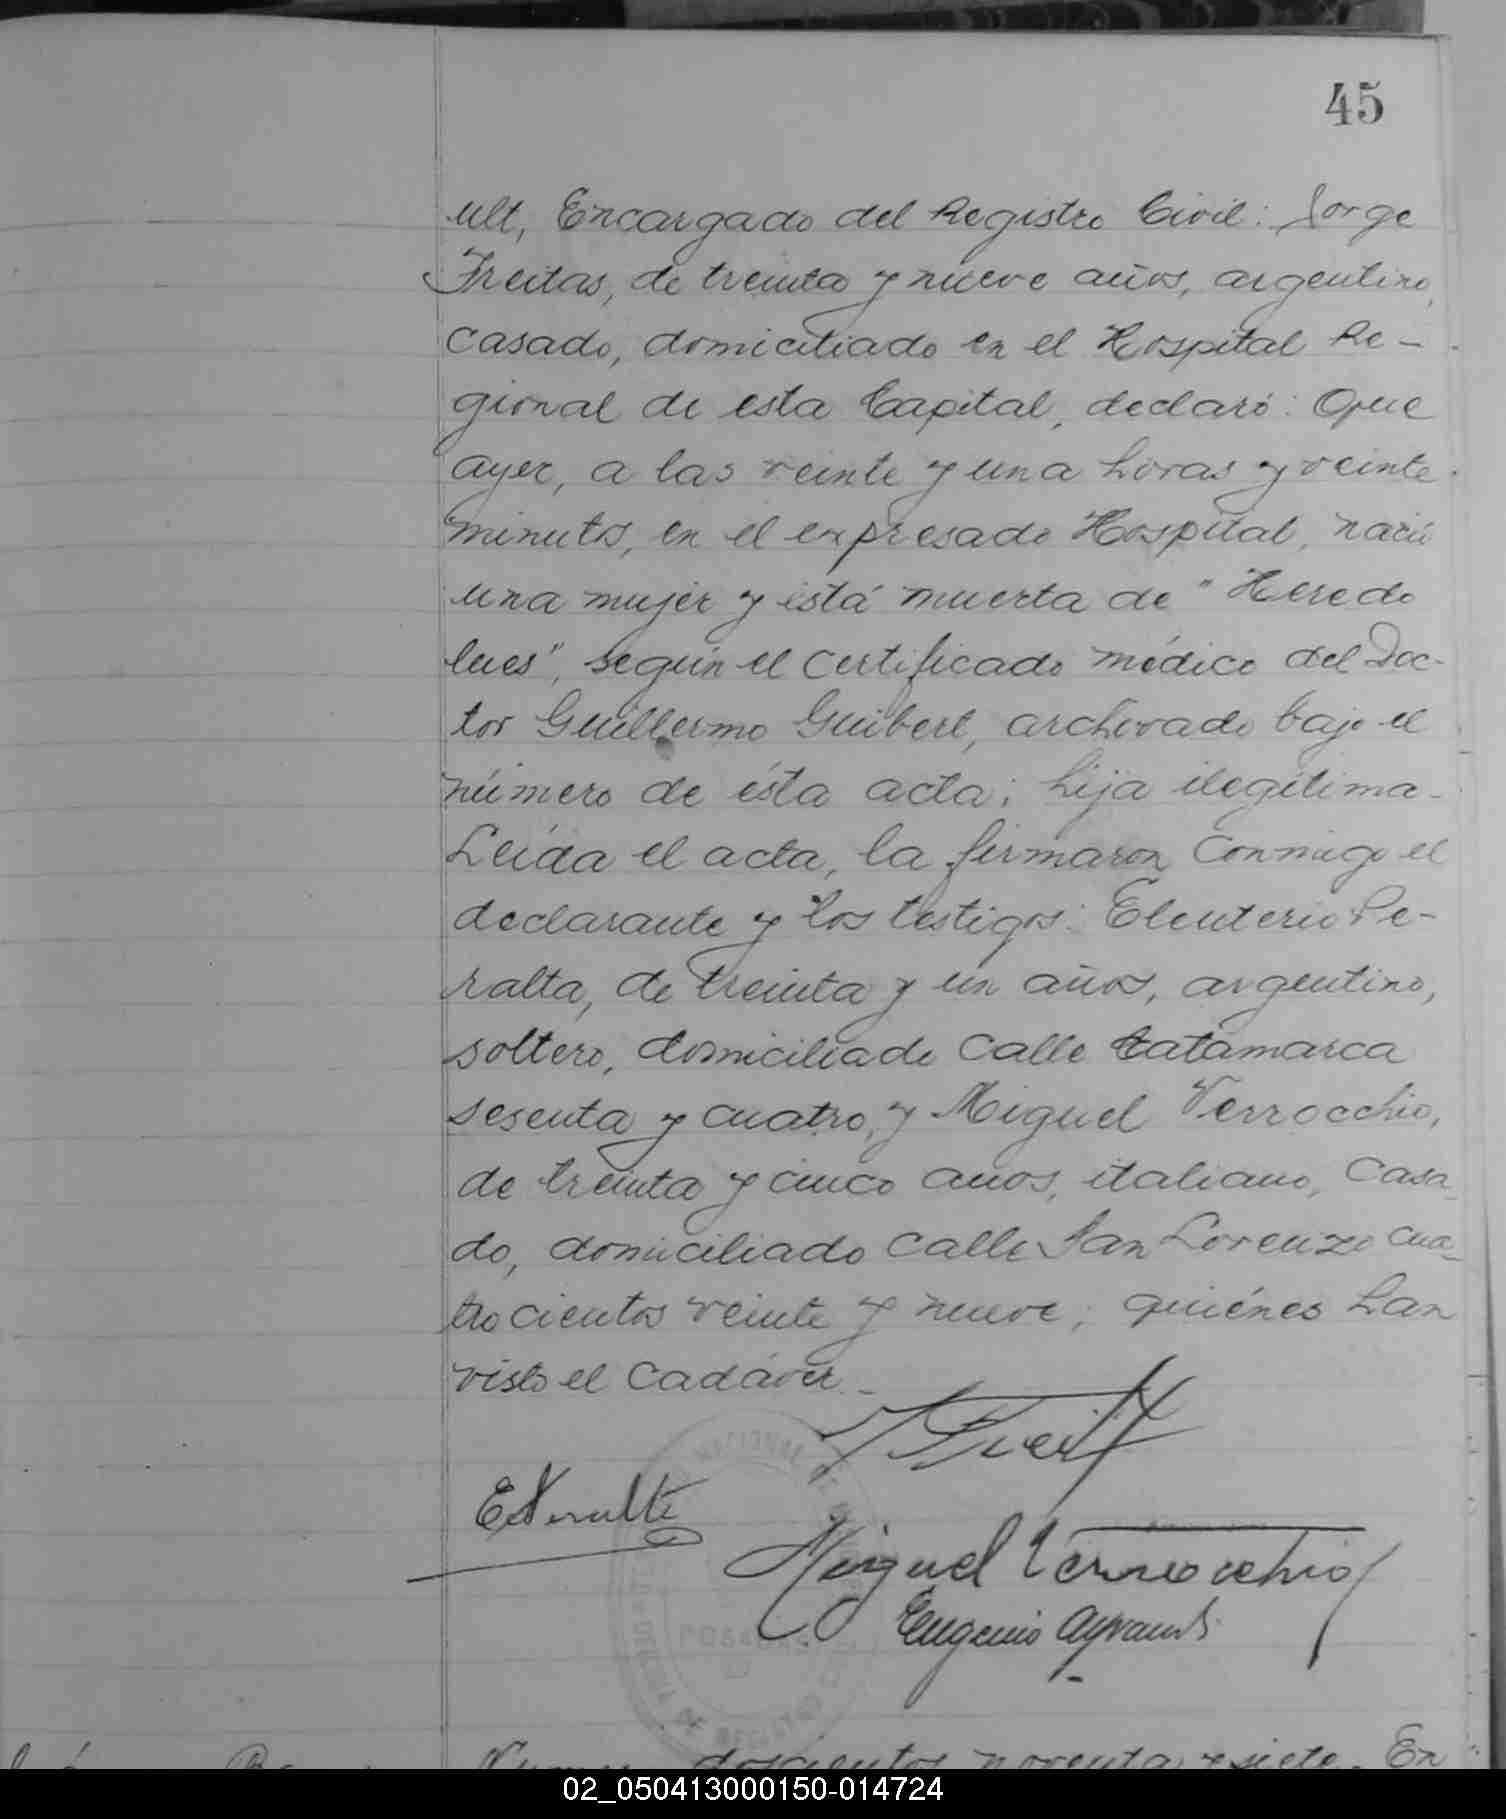 45
ult, Encargado del Registro Civil: Jorge
Freitas, de treinta y nueve años, argentino,
casado, domiciliado en el Hospital Re-
gional de esta Capital, declaró: Que
ayer, a las veinte y una horas y veinte
minutos, en el expresado Hospital, nació
una mujer y está muerta de "Heredo
lues", según el certificado médico del Doc-
tor Guillermo Guibert, archivado bajo el
número de ésta acta; hija ilegítima-
Leída el acta, la firmaron conmigo el
declarante y los testigos: Eleuterio Pe-
ralta, de treinta y un años, argentino,
soltero, domiciliado calle Catamarca
sesenta y cuatro, y Miguel Verrocchio,
de treinta y cinco años, italiano, casa-
do, domiciliado calle San Lorenzo cua-
trocientos veinte y nueve; quiénes han
visto el cadáver.-
E Peralta
Miguel Verrocchio
Eugenio
NACIONAL DE
POSADAS
DE REGISTRO
doscientos noventa y siete. En
02_050413000150-014724